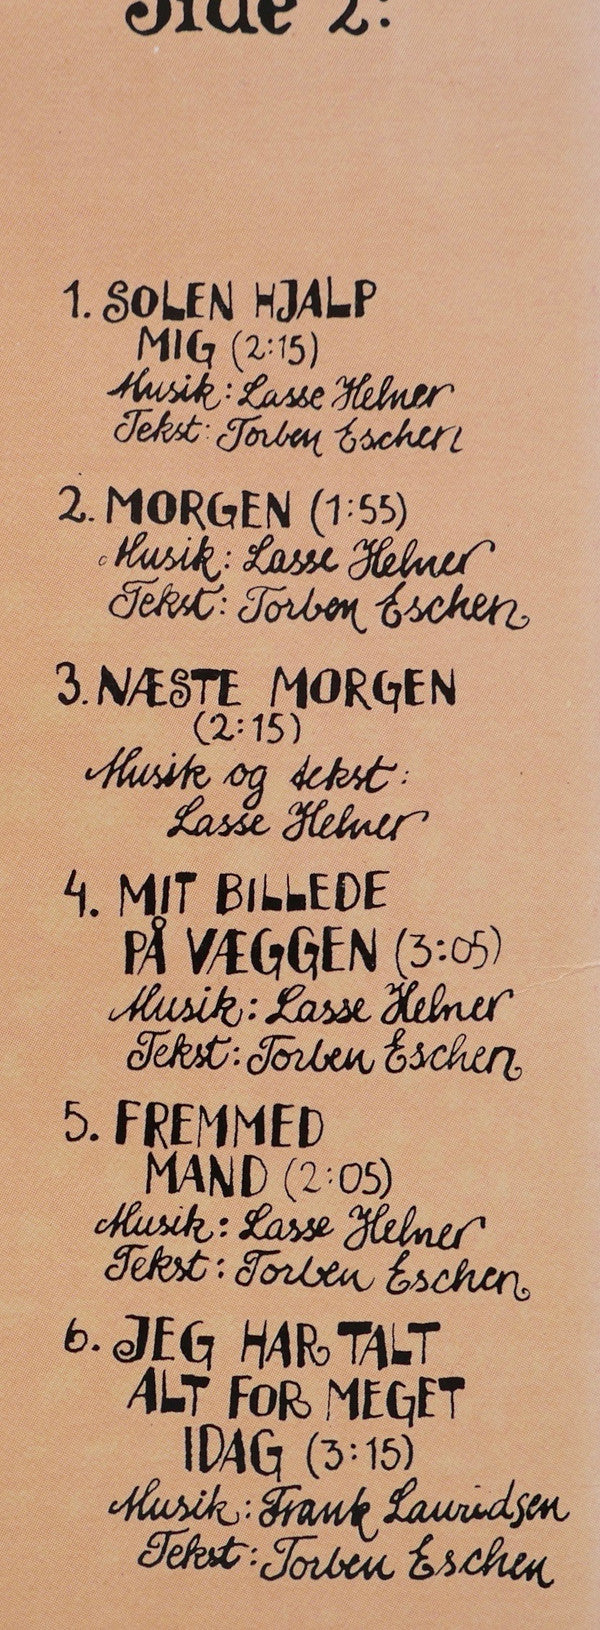 Side 2:
1. SOLEN HJALP
MIG (2:15)
Musik: Lasse Helner
Tekst: Torben Eschen
2. MORGEN (1:55)
Musik: Lasse Helner
Tekst: Torben Eschen
3. NÆSTE MORGEN
(2:15)
Musik og tekst:
Lasse Helner
4. MIT BILLEDE
PÅ VÆGGEN (3:05)
Musik: Lasse Helner
Tekst: Torben Eschen
5. FREMMED
MAND (2:05)
Musik: Lasse Helner
Tekst: Torben Eschen
6. JEG HAR TALT
ALT FOR MEGET
IDAG (3:15)
Musik: Frank Lauridsen
Tekst: Torben Eschen